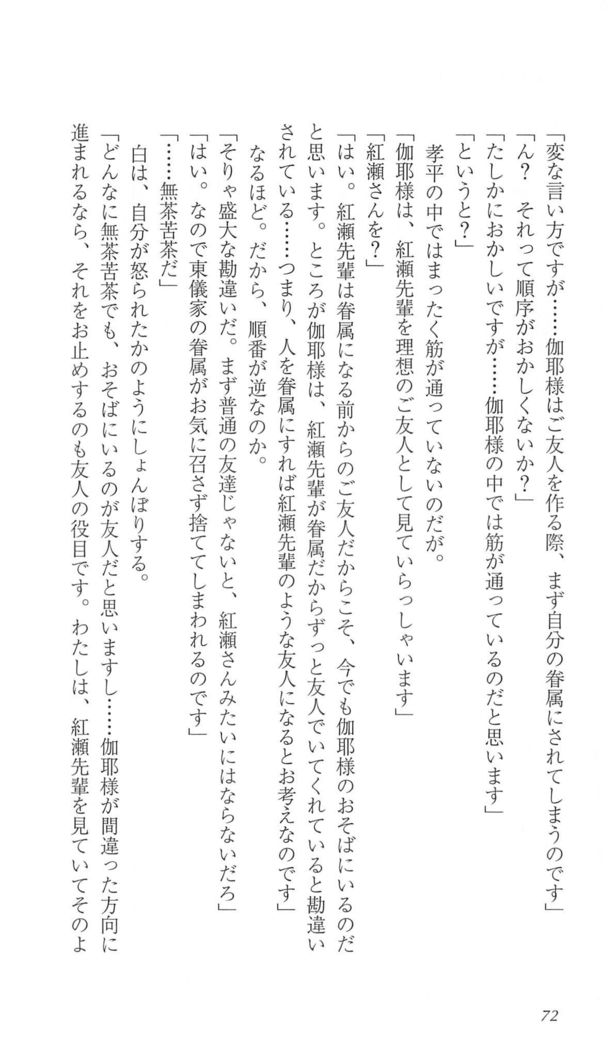 「変な言い方ですが……伽耶様はご友人を作る際、まず自分の眷属にされてしまうのです」
「ん？　それって順序がおかしくないか？」
「たしかにおかしいですが……伽耶様の中では筋が通っているのだと思います」
「というと？」
　孝平の中ではまったく筋が通っていないのだが。
「伽耶様は、紅瀬先輩を理想のご友人として見ていらっしゃいます」
「紅瀬さんを？」
「はい。紅瀬先輩は眷属になる前からのご友人だからこそ、今でも伽耶様のおそばにいるのだ
と思います。ところが伽耶様は、紅瀬先輩が眷属だからずっと友人でいてくれていると勘違い
されている……つまり、人を眷属にすれば紅瀬先輩のような友人になるとお考えなのです」
　なるほど。だから、順番が逆なのか。
「そりゃ盛大な勘違いだ。まず普通の友達じゃないと、紅瀬さんみたいにはならないだろ」
「はい。なので東儀家の眷属がお気に召さず捨ててしまわれるのです」
「……無茶苦茶だ」
　白は、自分が怒られたかのようにしょんぼりする。
「どんなに無茶苦茶でも、おそばにいるのが友人だと思いますし……伽耶様が間違った方向に
進まれるなら、それをお止めするのも友人の役目です。わたしは、紅瀬先輩を見ていてそのよ
72